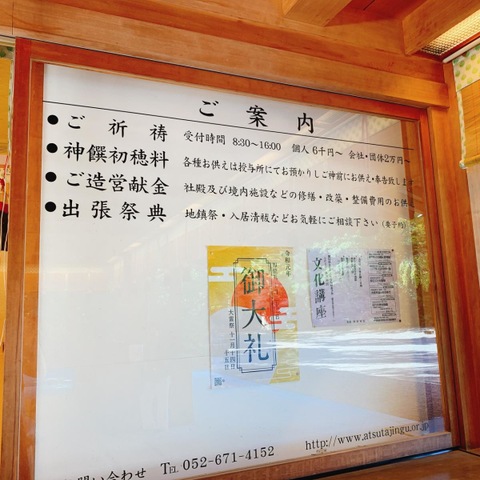 ご案内
●ご祈祷 受付時間 8:30~16:00 個人 6千円~ 会社・団体2万円~
●神饌初穂料 各種お供えは授与所にてお預かりしご神前にお供え・奉告致します
●ご造営献金 社殿及び境内施設などの修繕・改築・整備費用のお供
●出張祭典 地鎮祭・入居清祓などお気軽にご相談下さい(要予約)
令和元年
御大礼
大嘗祭 十一月十四日
十五日
文化講座
問い合わせ TEL 052-671-4152 http://www.atsutajingu.or.jp